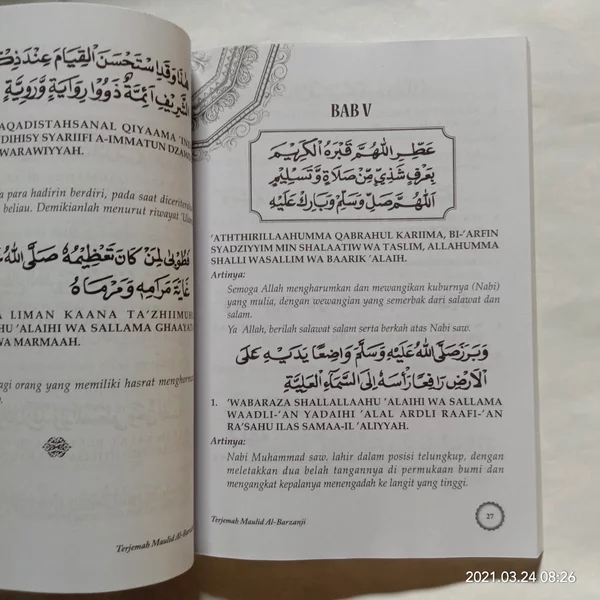 هٰذَا وَقَدِ اسْتَحْسَنَ الْقِيَامَ عِنْدَ
الشَّرِيْفِ اَئِمَّةٌ ذَوُوْا رِوَايَةٍ وَّرَوِيَّةٍ
AQADISTAHSANAL QIYAAMA
DIHISY SYARIIFI A-IMMATUN
WARAWIYYAH.
para hadirin berdiri, pada saat
beliau. Demikianlah menurut riwayat
فَطُوْبٰى لِمَنْ كَانَ تَعْظِيْمُهُ صَلَّى اللهُ
غَايَةَ مَرَامِهِ وَمَرْمَاهُ
LIMAN KAANA TA'ZHIIMUH
HU 'ALAIHI WA SALLAMA GHAAYAT
WA MARMAAH.
agi orang yang memiliki hasrat
Terjemah Maulid
BAB V
عَطِّرِ اللّٰهُمَّ قَبْرَهُ الْكَرِيْمَ
بِعَرْفٍ شَذِيٍّ مِّنْ صَلَاةٍ وَّتَسْلِيْمٍ
اَللّٰهُمَّ صَلِّ وَسَلِّمْ وَبَارِكْ عَلَيْهِ
'ATHTHIRILLAAHUMMA QABRAHUL KARIIMA, BI-'ARFIN
SYADZIYYIM MIN SHALAATIW WA TASLIM, ALLAHUMMA
SHALLI WASALLIM WA BAARIK 'ALAIH.
Artinya:
Semoga Allah mengharumkan dan mewangikan kuburnya (Nabi)
yang mulia, dengan wewangian yang semerbak dari salawat dan
salam.
Ya Allah, berilah salawat salam serta berkah atas Nabi saw.
وَبَرَزَ صَلَّى اللهُ عَلَيْهِ وَسَلَّمَ وَاضِعًا يَدَيْهِ عَلَى
الْاَرْضِ رَافِعًا رَأْسَهُ اِلَى السَّمَاءِ الْعَلِيَّةِ
1. 'WABARAZA SHALLALLAAHU 'ALAIHI WA SALLAMA
WAADLI-'AN YADAIHI 'ALAL ARDLI RAAFI-'AN
RA'SAHU ILAS SAMAA-IL 'ALIYYAH.
Artinya:
Nabi Muhammad saw. lahir dalam posisi telungkup, dengan
meletakkan dua belah tangannya di permukaan bumi dan
mengangkat kepalanya menengadah ke langit yang tinggi.
Terjemah Maulid Al-Barzanji
27
2021.03.24 08:26